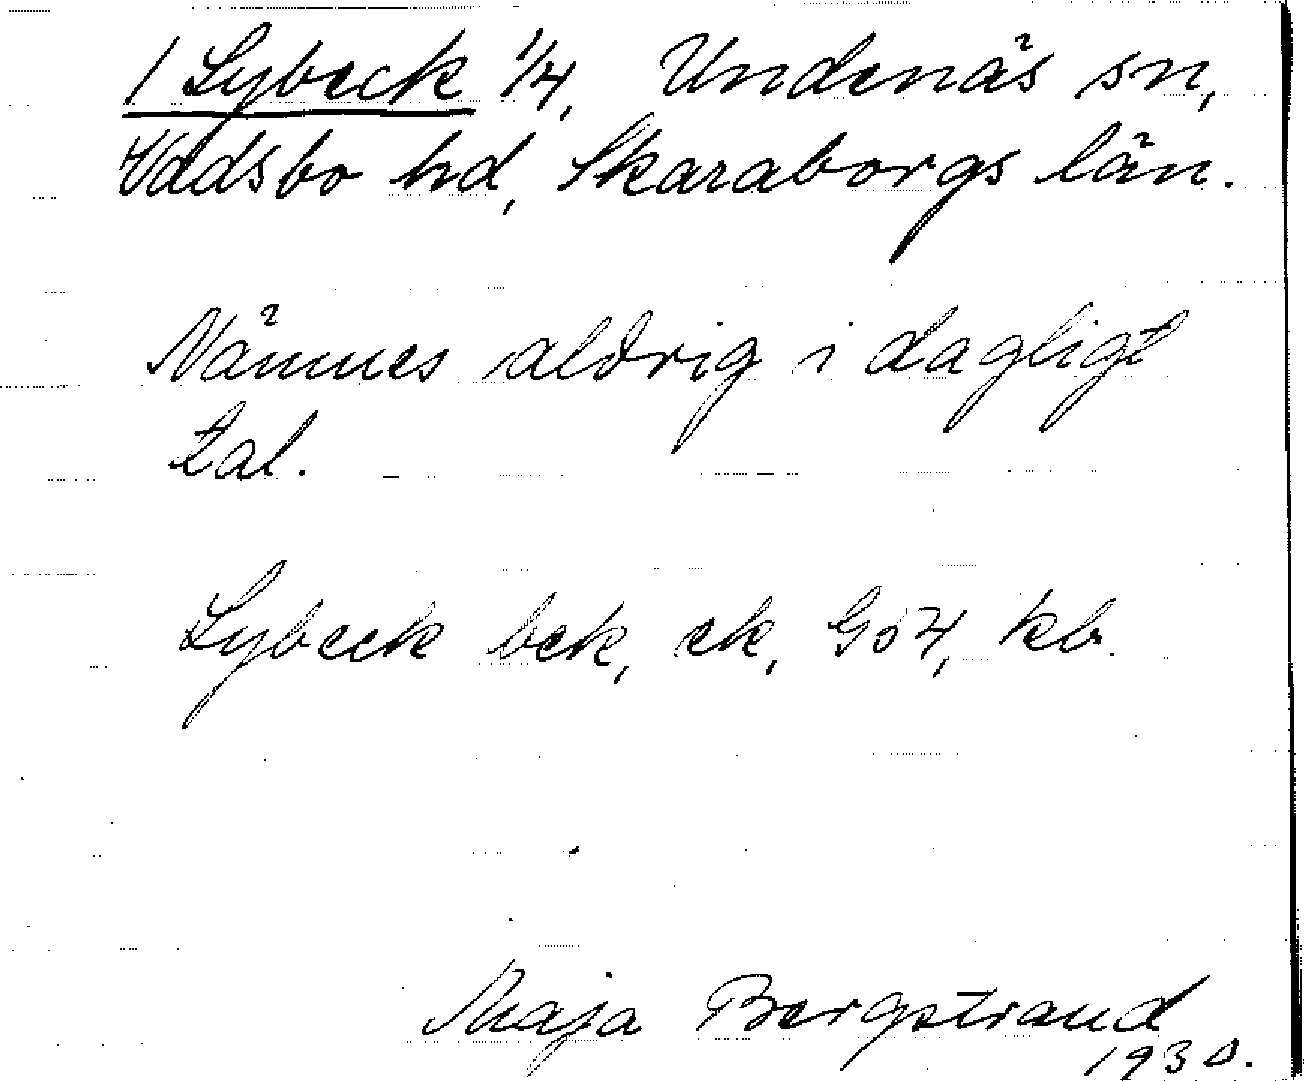 1 Lybeck 1/4, Undenäs sn,
Vadsbo hd, Skaraborgs län.
Nämnes aldrig i dagligt
tal.
Lybeck bek, ek, Gö4, kb.
Maja Bergstrand
1930.